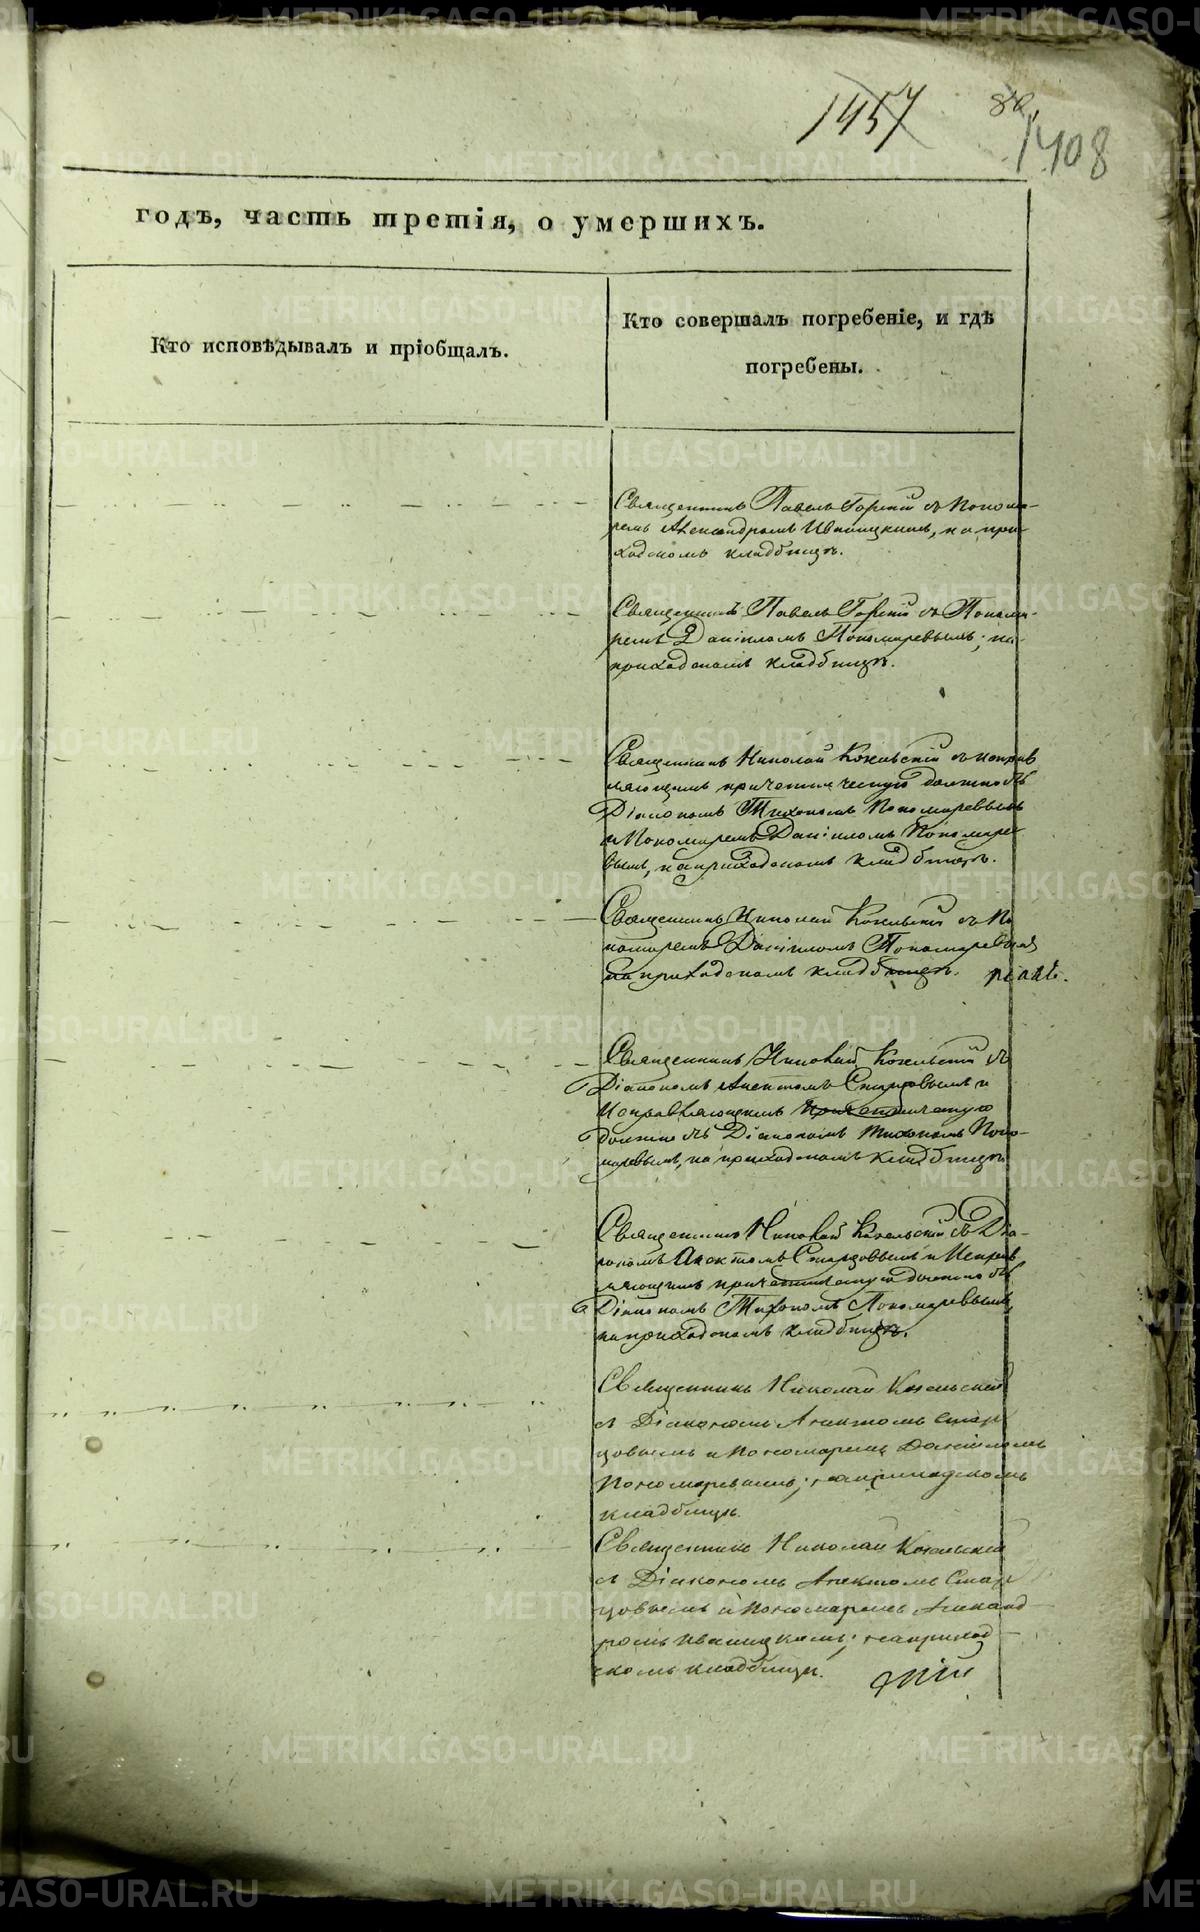 1457
82.
1408
годъ, часть третія, о умершихъ.
Кто исповѣдывалъ и пріобщалъ.
Кто совершалъ погребеніе, и гдѣ
погребены.
Священникъ Павелъ Горскій съ Понома-
ремъ Александромъ Иваницкимъ, на при-
ходскомъ кладбищѣ.
Священникъ Павелъ Горскій съ Понома-
ремъ Даніиломъ Пономаревымъ; на
приходскомъ кладбищѣ.
Священникъ Николай Кокельскій съ исправ
ляющимъ причетническую должность
Діакономъ Тихономъ Пономаревымъ
и Пономаремъ Даніиломъ Пономаре
вымъ, на приходскомъ кладбищѣ.
Священникъ Николай Кокельскій съ По
номаремъ Даніиломъ Пономаревымъ
на приходскомъ кладбищѣ.
Священникъ Николай Кокельскій съ
Діакономъ Анектомъ Старцовымъ и
Исправляющимъ Причетническую
должность Діакономъ Тихономъ Поно-
маревымъ, на приходскомъ кладбищѣ
Священникъ Николай Кокельскій съ Діа-
кономъ Анектомъ Старцовымъ и Исправ
ляющимъ причетническую должность
Діакономъ Тихономъ Пономаревымъ,
на приходскомъ кладбищѣ.
Священникъ Николай Кокельскій
съ Діакономъ Анектомъ Стар
цовымъ и Пономаремъ Даніиломъ
Пономаревымъ; на приходскомъ
кладбищѣ.
Священникъ Николай Кокельскій
съ Діакономъ Анектомъ Стар
цовымъ и Пономаремъ Александ
ромъ Иваницкимъ; на приход
скомъ кладбищѣ.
METRIKI.GASO-URAL.RU